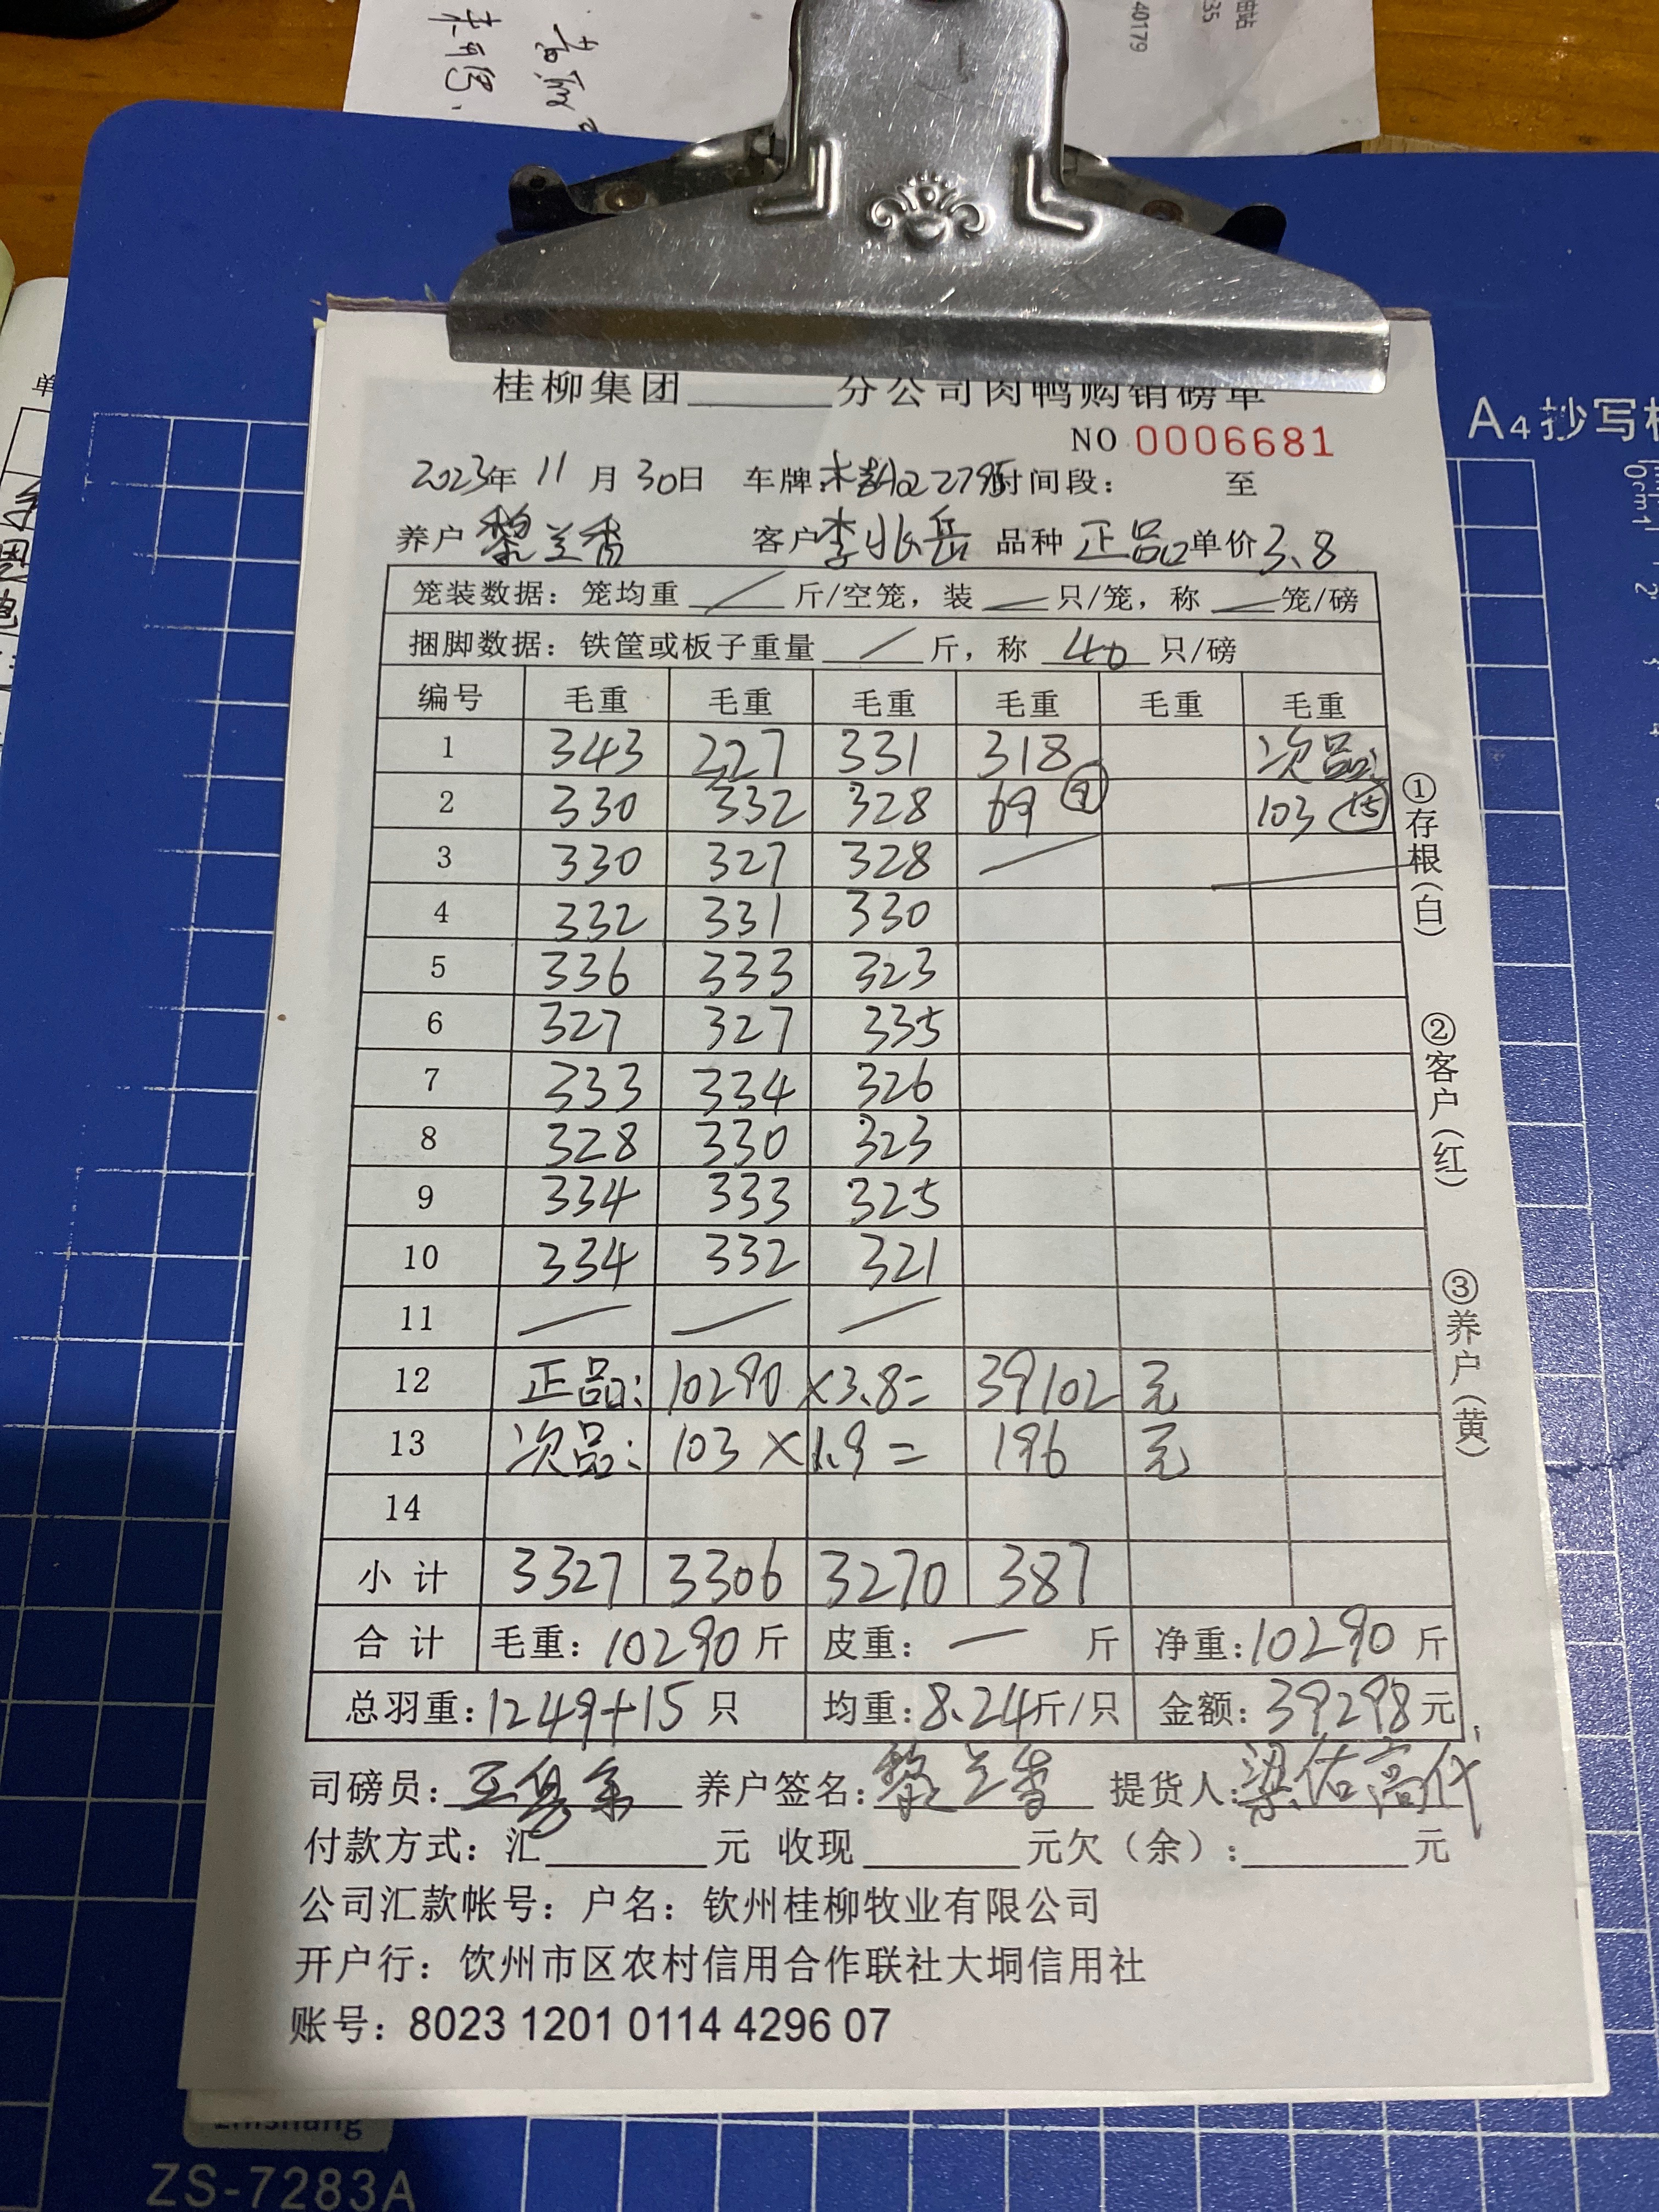 桂柳集团______分公司肉鸭购销磅单
NO 0006681
2023年 11月 30日 车牌: 022795 时间段: 至
养户 黎兰香 客户 李兆岳 品种 正品 单价 3.8
笼装数据: 笼均重 / 斤/空笼, 装 — 只/笼, 称 — 笼/磅
捆脚数据: 铁筐或板子重量 / 斤, 称 40 只/磅
编号 毛重 毛重 毛重 毛重 毛重 毛重
1 343 227 331 318 次品:
2 330 332 328 69 ⑨ 103 ⑮
3 330 327 328 /
4 332 331 330
5 336 333 323
6 327 327 335
7 333 334 326
8 328 330 323
9 334 333 325
10 334 332 321
11 / / /
12 正品: 10290 ×3.8= 39102 元
13 次品: 103 ×1.9= 196 元
14
小计 3327 3306 3270 387
合计 毛重: 10290 斤 皮重: — 斤 净重: 10290 斤
总羽重: 1249+15 只 均重: 8.24 斤/只 金额: 39298 元
司磅员: 养户签名: 黎兰香 提货人: 梁佑高代
付款方式: 汇______元 收现______元欠(余):______元
公司汇款帐号: 户名: 钦州桂柳牧业有限公司
开户行: 钦州市区农村信用合作联社大垌信用社
账号: 8023 1201 0114 4296 07
①存根(白) ②客户(红) ③养户(黄)
A4抄写
0cm1
2
40179
35
ZS-7283A